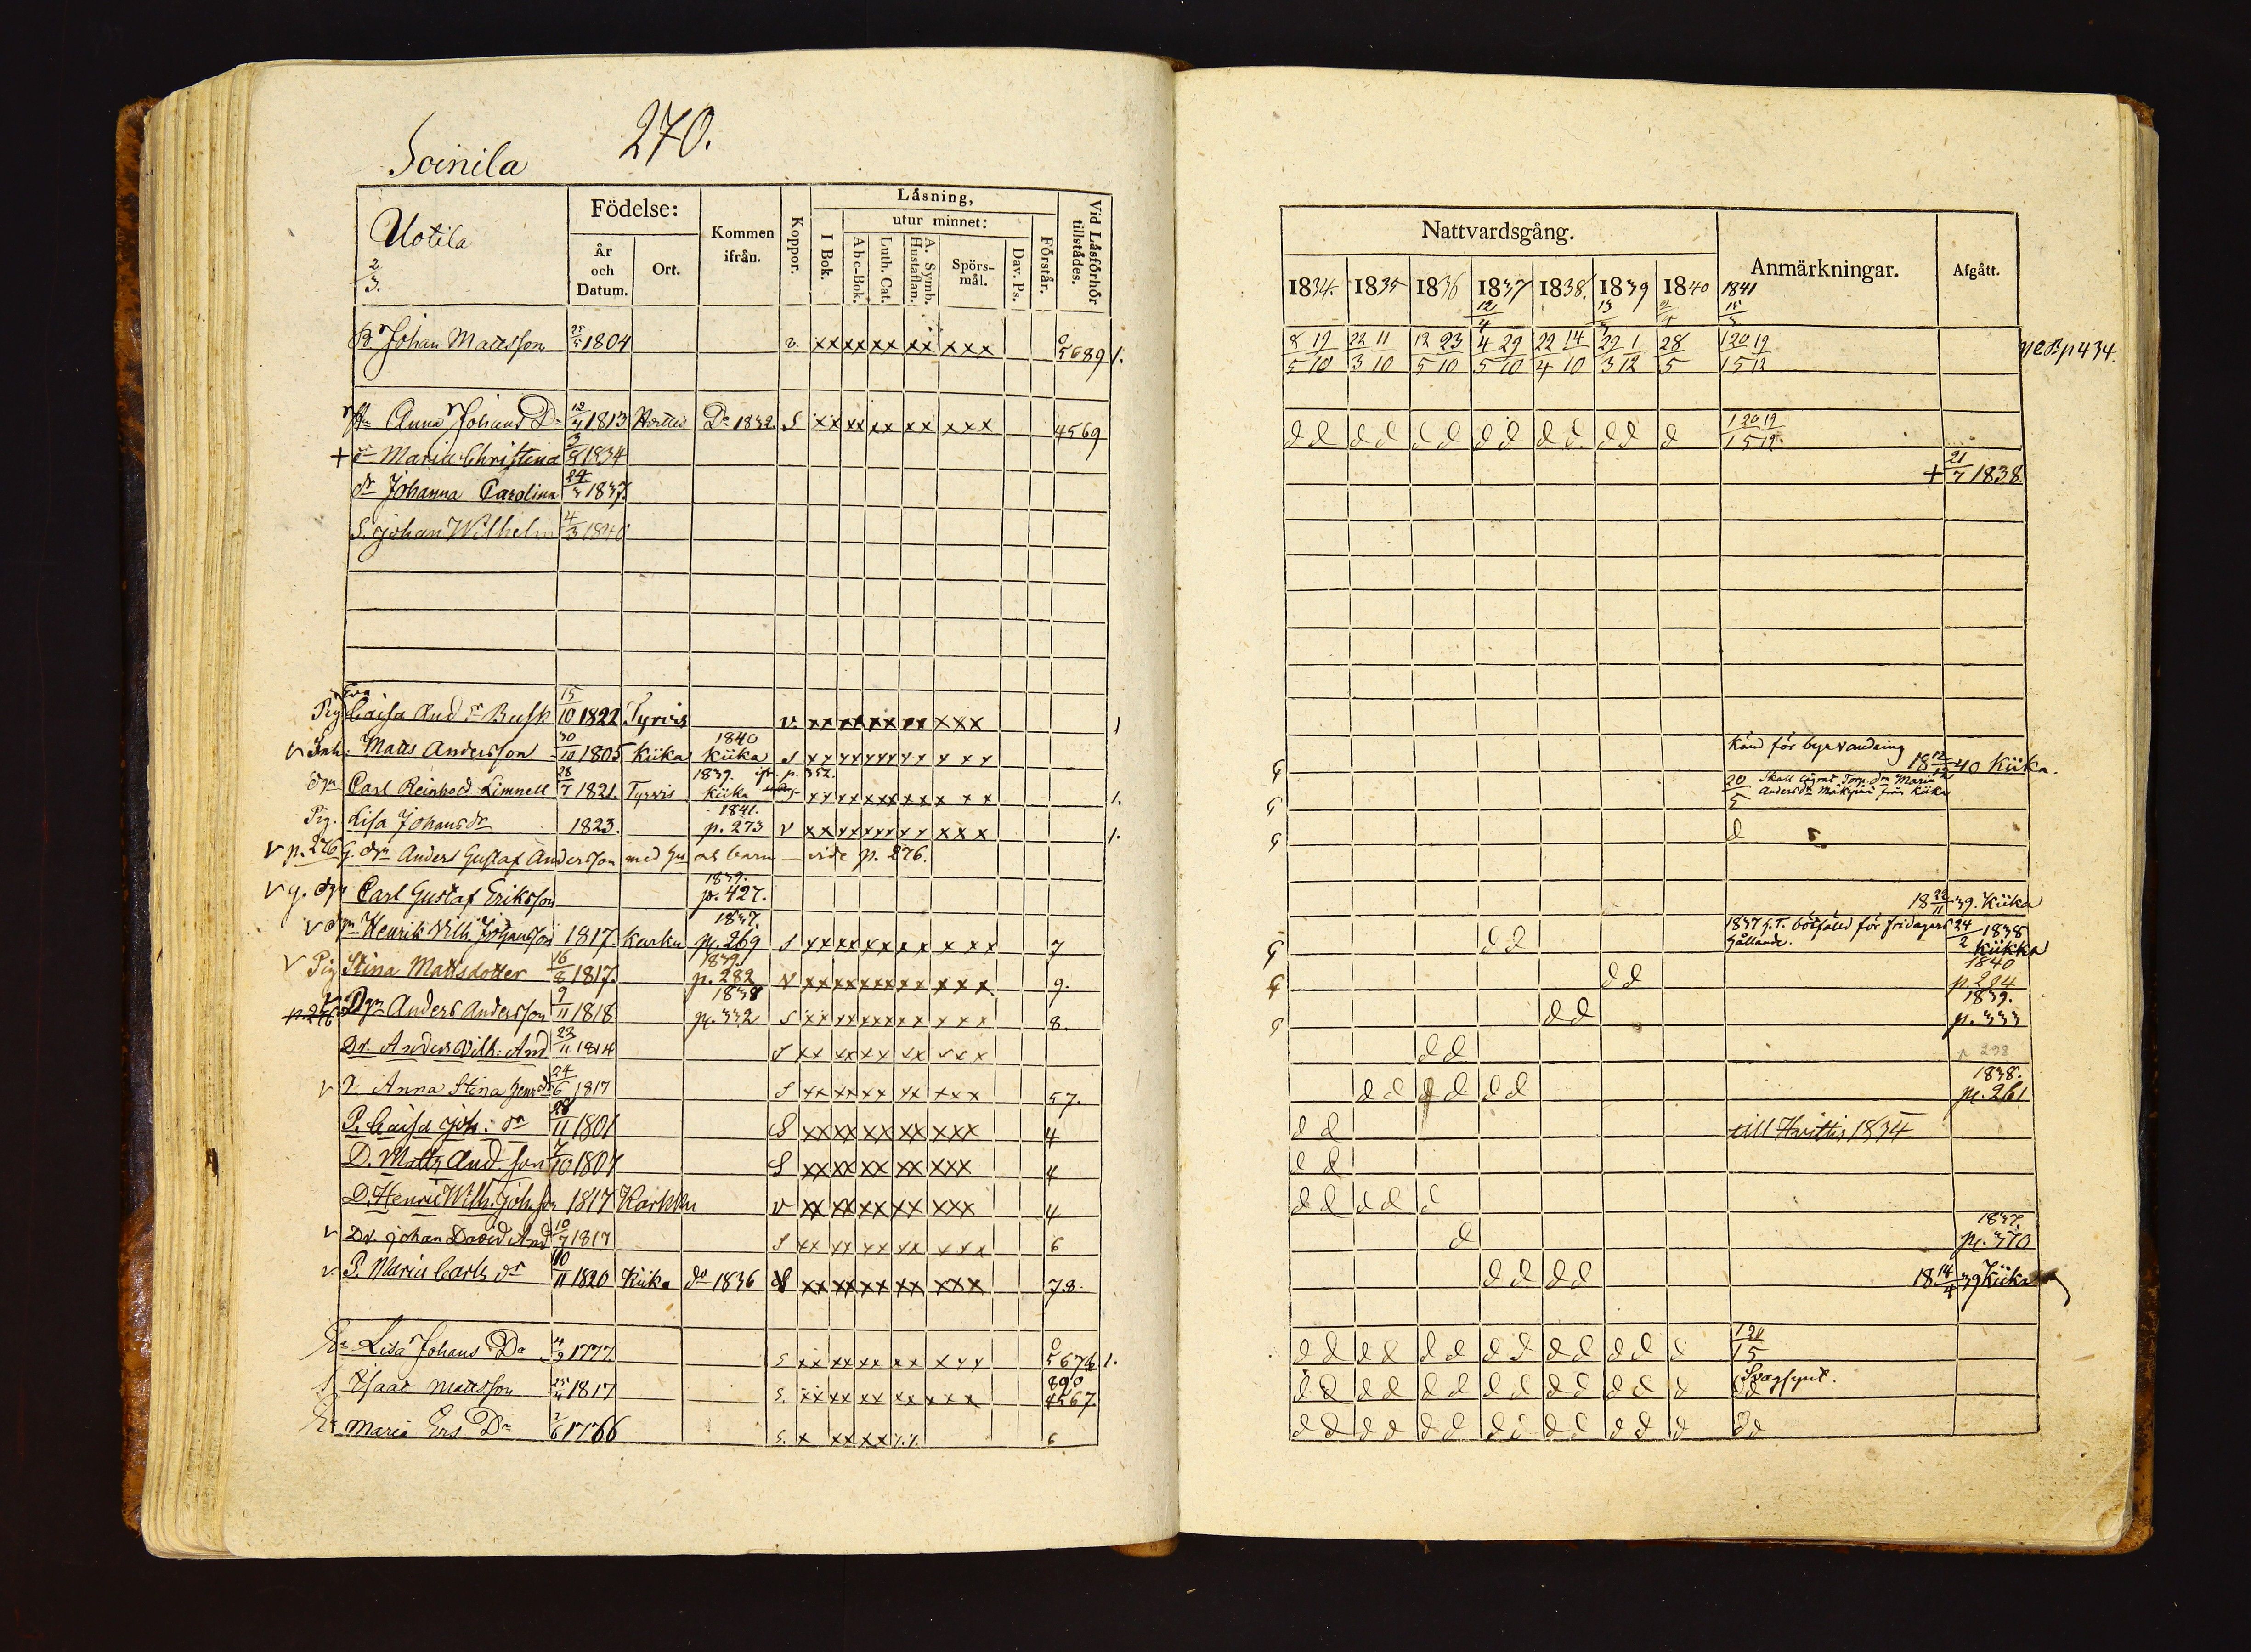 270.
Soinila
Uotila
2/3.
Födelse:
År och Datum.
Ort.
Kommen ifrån.
Koppor.
Läsning,
I Bok.
utur minnet:
Abc-Bok.
Luth. Cat.
A. Symb. Hustaflan.
Spörsmål.
Dav. Ps.
Förstår.
Vid Läsförhör tillstädes.
B. Johan Mattsson 25/5 1804 v. xx xx xx xx xxx 5689 1.
Anna Johans Dr 12/7 1813 Do 1832. S xx xx xx xx xxx 4569
+ dr Maria Christina 3/8 1834
dr Johanna Carolina 24/3 1837.
S. Johan Wilhelm 4/3 1840
Pig. Eva Caisa And dr Busk 15/10 1822 Tyrvis v. xx xx xx xx xxx 1
v Inh. Matts Andersson 30/10 1805 Kiika 1840 Kiika S xx xx xx xx x x x
Carl Reinhold Limnell 28/7 1821. Tyrvis 1839. Kiika p. 352. xx xx xx xx x x x 1.
Pig. Lisa Johansdr 1823. 1841. p. 273 v xx xx xx xx x x x 1.
v p. 276 G. dgr Anders Gustaf Andersson med hu och barn — vide p. 276.
v g. dgr Carl Gustaf Eriksson 1839. p. 427.
v dgr Henrik Vilh. Johansson 1817. Karku 1837. p. 269 S xx xx xx xx x x x 7
v Pig Stina Mattsdotter 16/8 1817. 1839. p. 282 v xx xx xx xx x x x 9.
p. 276 Dgr Anders Andersson 9/11 1818 1838 p. 332 S xx xx xx xx x x x 8.
Dr. Anders Vilh. And 23/11 1814 S xx xx xx xx xxx
v P. Anna Stina Henr dr 24/6 1817 S xx xx xx xx xxx 57.
P. Caisa Joh: dr 28/11 1801 S xx xx xx xx xxx 4
D. Matts And. son 7/10 1807 S xx xx xx xx xxx 4
D. Henric Wilh. Joh. son 1817 Karkku v xx xx xx xx xxx 4
v Dr. Johan David And 10/7 1817 S xx xx xx xx xxx 6
v. P. Maria Carls dr 10/11 1820 Kiika do 1836 S xx xx xx xx xxx 78.
Lisa Johans Dr 4/9 1777. S xx xx xx xx xxx 5676 1.
Isaac Mattsson 25/4 1817 S. xx xx xx xx xxx 890 4567.
Maria Ers Dr 2/6 1766 S. x xx xx 6
Nattvardsgång.
Anmärkningar.
Afgått.
1834. 1835 1836 1837 1838. 1839 1840 1841
12/4 2/4
8 19 22 11 12 23 4 29 22 14 22 1 28 1 20 19
5 10 3 10 5 10 5 10 4 10 3 12 5 1 5 12
p 434.
d d d d d d d d d d d d d 1 20 19
1 5 12
+ 21/7 1838.
känd för byavandring 18 12/12 40 Kiika.
20/5 Skall lägrat Torp. dr Maria Andersdr Mäkipää från Kiika
d
18 22/11 39. Kiika
d d 1837 h. T. bötfäld för fridagars hållande. 24/2 1838 Kiikka
d d 1840 p. 284
d d 1839. p. 333
d d 298
d d d d d d 1838. p. 261
d d till Huittis 1834
d d
d d d d d
d 1837. p. 370
d d d d 18 14/4 39 Kiika
d d d d d d d d d d d d d 1 20
1 5
d d d d d d d d d d d d d Svagsynt. dd
d d d d d d d d d d d d d dd